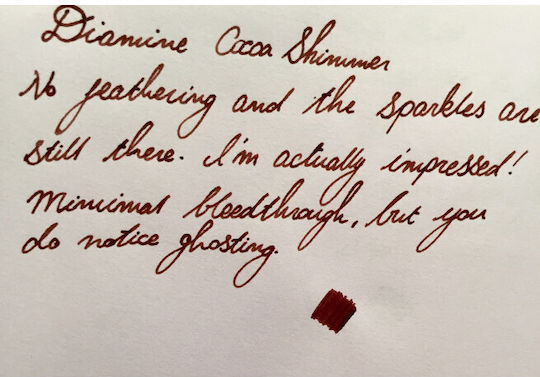 Diamine Cocoa Shimmer
No feathering and the sparkles are
still there. I'm actually impressed!
Minimal bleedthrough, but you
do notice ghosting.